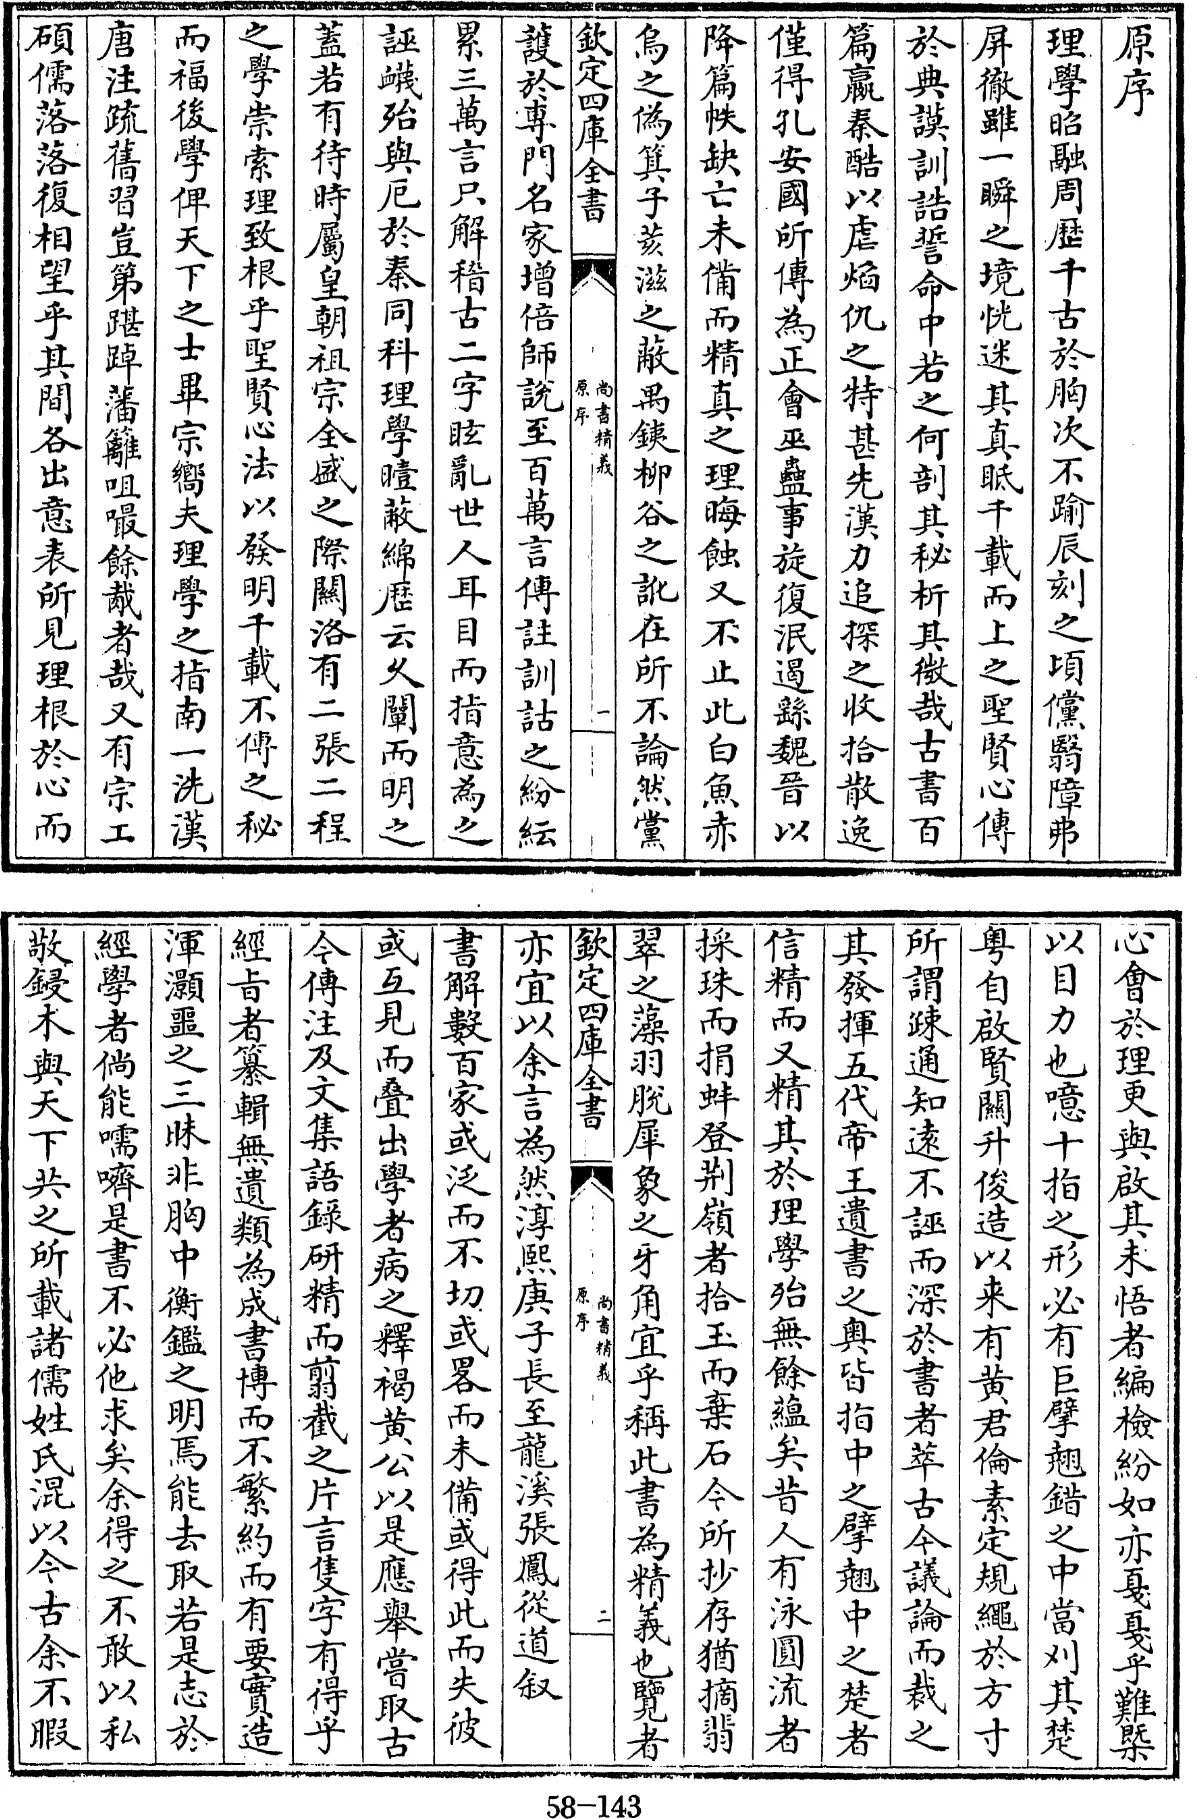 原序
理學昭融周歷千古於胸次不踰辰刻之頃儻翳障弗
屏徹雖一瞬之境恍迷其真眂千載而上之聖賢心傳
於典謨訓誥誓命中若之何剖其秘析其微哉古書百
篇嬴秦酷以虐焰仇之特甚先漢力追探之收拾散逸
僅得孔安國所傳為正會巫蠱事旋復泯遏繇魏晉以
降篇帙缺亡未備而精真之理晦蝕又不止此白魚赤
烏之偽箕子荄滋之蔽禺銕柳谷之訛在所不論然黨
欽定四庫全書
尚書精義
原序
一
護於專門名家增倍師說至百萬言傳註訓詁之紛紜
累三萬言只解稽古二字眩亂世人耳目而指意為之
誣衊殆與厄於秦同科理學曀蔽綿歷云久闡而明之
蓋若有待時屬皇朝祖宗全盛之際關洛有二張二程
之學崇索理致根乎聖賢心法以發明千載不傳之秘
而福後學俾天下之士畢宗嚮夫理學之指南一洗漢
唐注疏舊習豈第踸踔藩籬咀嘬餘胾者哉又有宗工
碩儒落落復相望乎其間各出意表所見理根於心而
心會於理更與啟其未悟者編檢紛如亦戛戛乎難槩
以目力也噫十指之形必有巨擘翹錯之中當刈其楚
粤自啟賢關升俊造以来有黃君倫素定規繩於方寸
所謂疎通知遠不誣而深於書者萃古今議論而裁之
其發揮五代帝王遺書之奧皆指中之擘翹中之楚者
信精而又精其於理學殆無餘蘊矣昔人有泳圓流者
採珠而捐蚌登荆嶺者拾玉而棄石今所抄存猶摘翡
翠之藻羽脫犀象之牙角宜乎稱此書為精義也覽者
欽定四庫全書
尚書精義
原序
二
亦宜以余言為然淳熙庚子長至龍溪張鳳從道叙
書解數百家或泛而不切或畧而未備或得此而失彼
或互見而疊出學者病之釋褐黃公以是應舉嘗取古
今傳注及文集語錄研精而翦截之片言隻字有得乎
經旨者纂輯無遺類為成書博而不繁約而有要實造
渾灝噩之三昧非胸中衡鑑之明焉能去取若是志於
經學者倘能嚅嚌是書不必他求矣余得之不敢以私
敬鋟木與天下共之所載諸儒姓氏混以今古余不暇
58-143